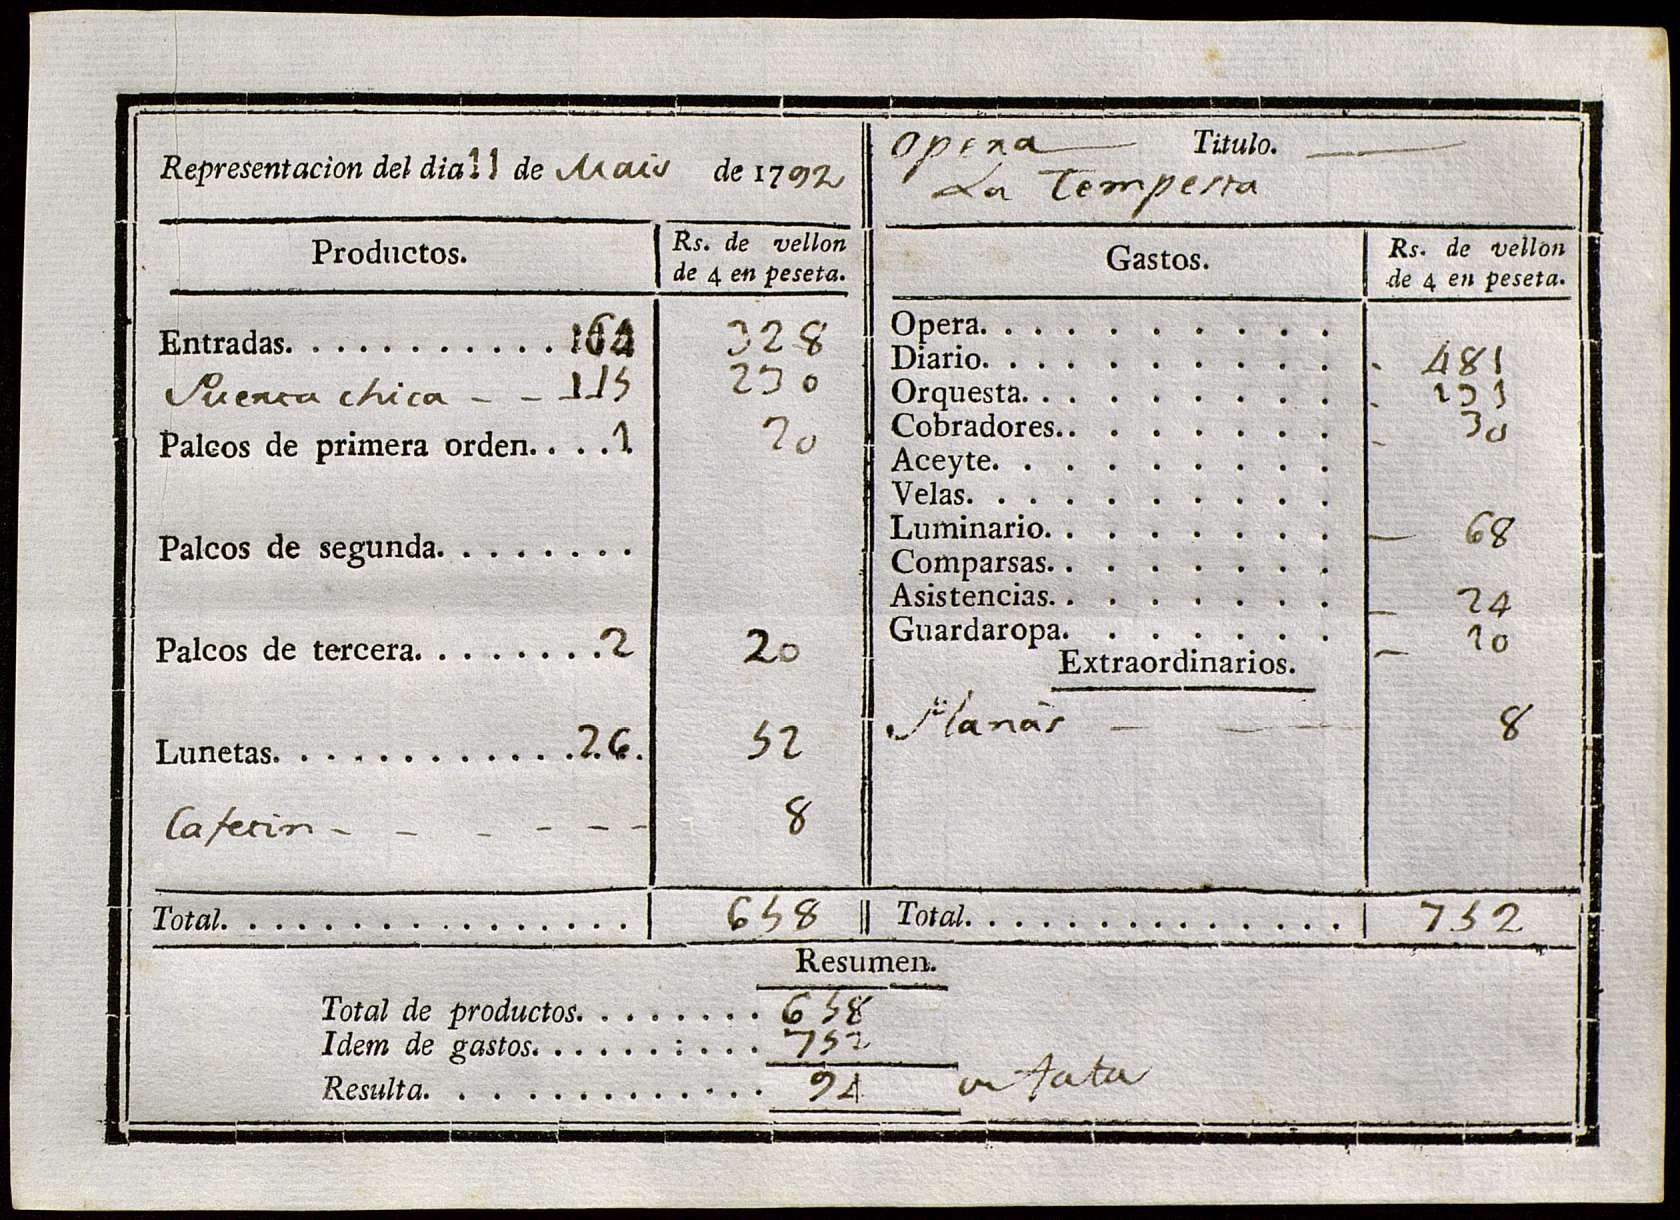 Representacion del dia 11 de Maio de 1792
Opera Titulo.
La Tempesta
Productos. Rs. de vellon de 4 en peseta.
Entradas. . . . . . . . . . . 164 328
Puerta chica - - 115 230
Palcos de primera orden. . . . 1 20
Palcos de segunda. . . . . . . .
Palcos de tercera. . . . . . . . 2 20
Lunetas. . . . . . . . . . . . . 26 52
Cafetin - - - - - - 8
Total. . . . . . . . . . . . . . . . 658
Gastos. Rs. de vellon de 4 en peseta.
Opera. . . . . . . . . .
Diario. . . . . . . . . . 481
Orquesta. . . . . . . . . 131
Cobradores. . . . . . . . 30
Aceyte. . . . . . . . .
Velas. . . . . . . . . .
Luminario. . . . . . . . — 68
Comparsas. . . . . . . .
Asistencias. . . . . . . . — 24
Guardaropa. . . . . . . — 10
Extraordinarios.
— — — 8
Total. . . . . . . . . . . . . . 752
Resumen.
Total de productos. . . . . . . . 658
Idem de gastos. . . . . . . . . . 752
Resulta. . . . . . . . . . . . . 94 en falta